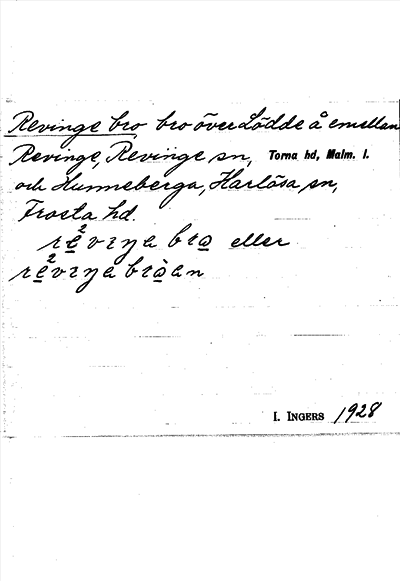 Revinge bro bro över Lödde å emellan
Revinge, Revinge sn, Torna hd, Malm. l.
och Hunneberga, Harlösa sn,
Frosta hd.
eller
I. INGERS 1928